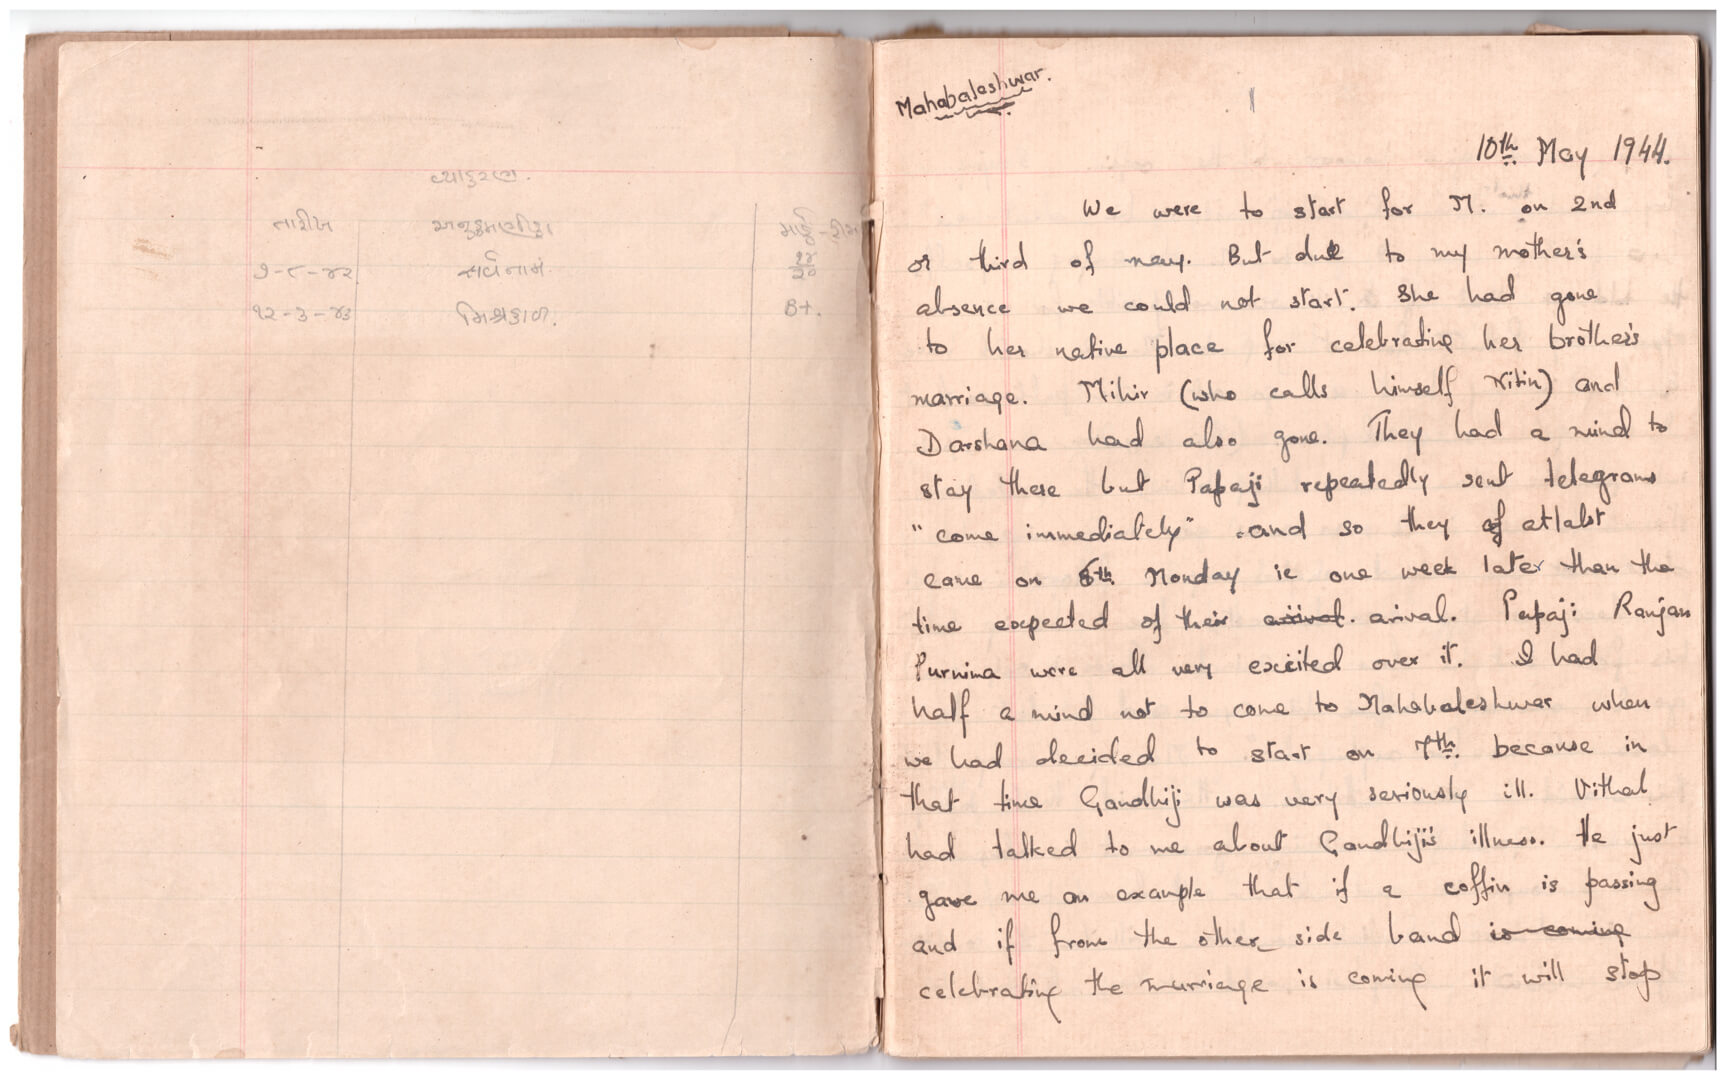 વ્યાકરણ.
તારીખ અનુક્રમણીકા
૭-૮-૪૨ સર્વનામ
૧૨-૩-૪૩ મિશ્રકાળ. B+.
Mahabaleshwar.
1
10th May 1944.
We were to start for M. on 2nd
or third of may. But due to my mother's
absence we could not start. She had gone
to her native place for celebrating her brother's
marriage. Mihir (who calls himself Nitin) and
Darshana had also gone. They had a mind to
stay there but Papaji repeatedly sent telegrams
"come immediately" and so they of atlast
came on 8th Monday ie one week later than the
time expected of their arival. arival. Papaji Ranjan
Purnima were all very excited over it. I had
half a mind not to come to Mahabaleshwar when
we had decided to start on 7th. because in
that time Gandhiji was very seriously ill. Vithal
had talked to me about Gandhiji's illness. He just
gave me an example that if a coffin is passing
and if from the other side band is coming
celebrating the murriage is coming it will stop